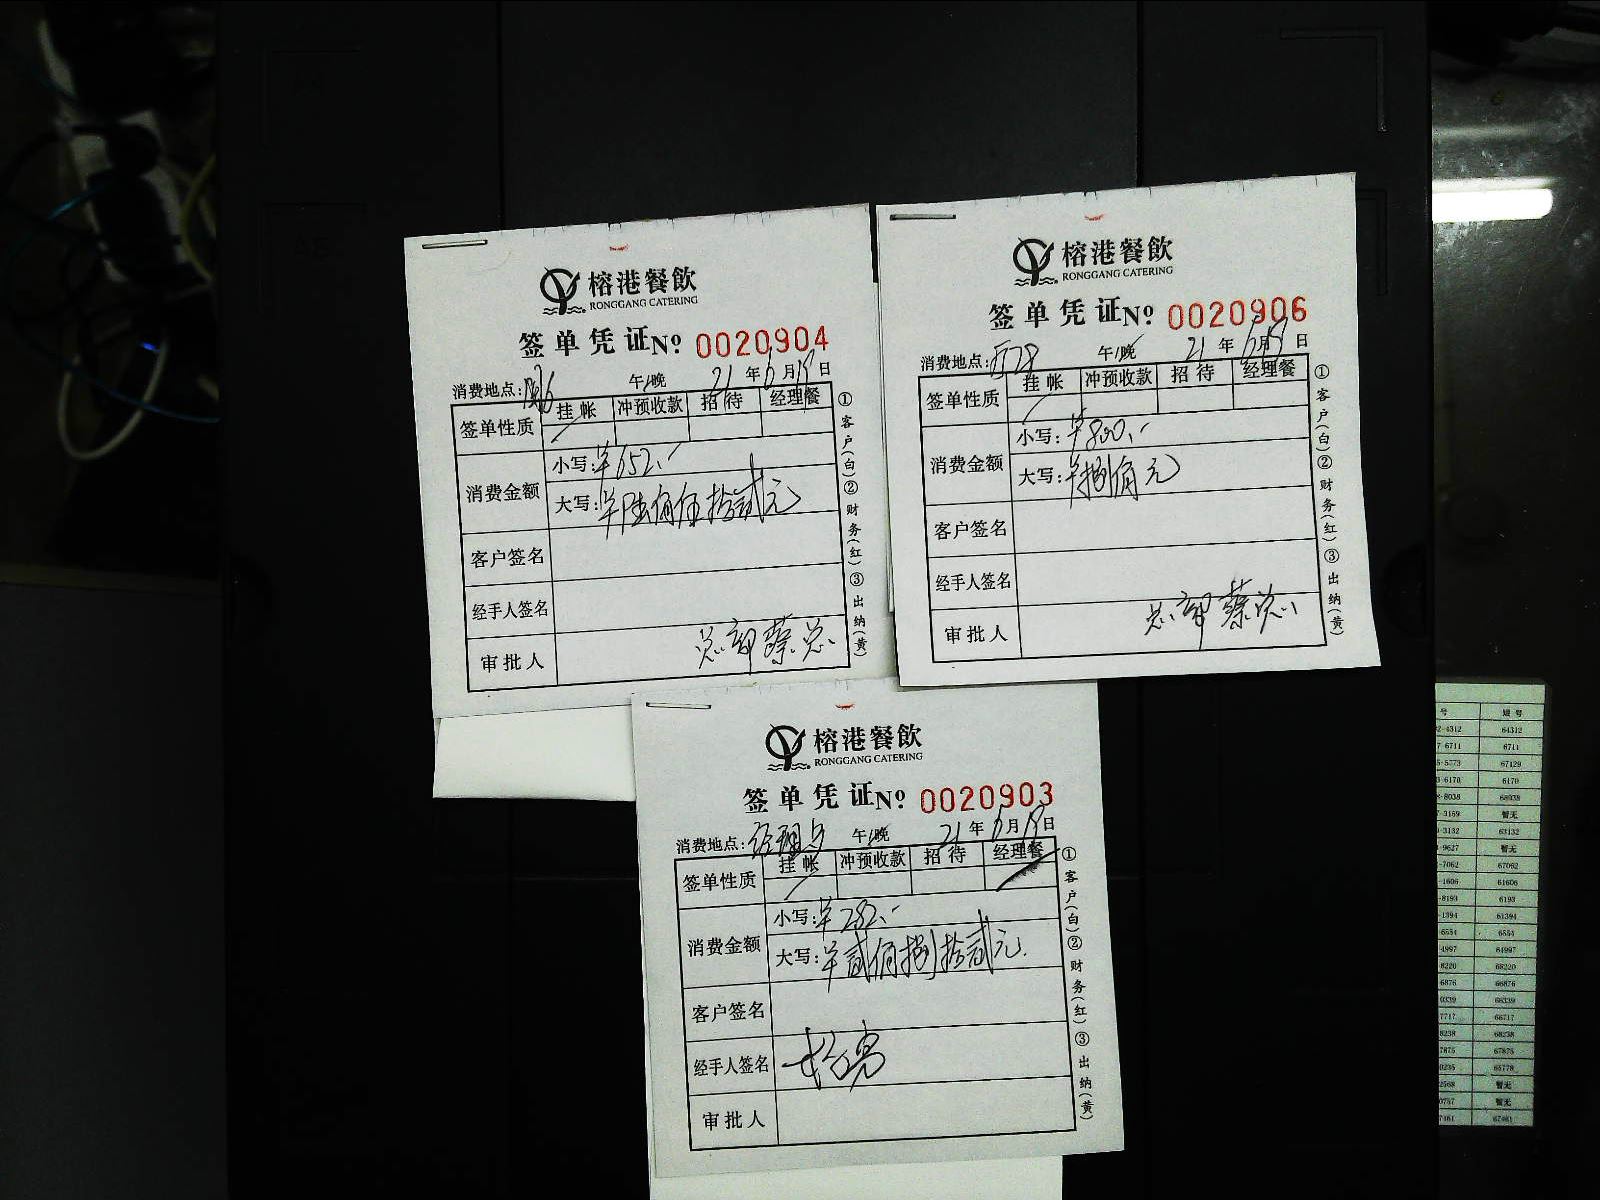 榕港餐飲
RONGGANG CATERING
签单凭证 Nº 0020904
消费地点: 午/晚 21年6月19日
签单性质 挂帐 冲预收款 招待 经理餐
消费金额 小写:¥652.-
大写:¥陆佰伍拾贰元
客户签名
经手人签名
审批人 总部蔡总
①客户(白)②财务(红)③出纳(黄)
榕港餐飲
RONGGANG CATERING
签单凭证 Nº 0020906
消费地点: 午/晚 21年6月19日
签单性质 挂帐 冲预收款 招待 经理餐
消费金额 小写:¥800.-
大写:¥捌佰元
客户签名
经手人签名
审批人 总部蔡总
①客户(白)②财务(红)③出纳(黄)
榕港餐飲
RONGGANG CATERING
签单凭证 Nº 0020903
消费地点: 午/晚 21年6月19日
签单性质 挂帐 冲预收款 招待 经理餐
消费金额 小写:¥282.-
大写:¥贰佰捌拾贰元
客户签名
经手人签名
审批人
①客户(白)②财务(红)③出纳(黄)
号 短号
64312
6711
67129
6170
68038
暂无
63132
暂无
67062
61606
6193
61394
6554
64997
68220
66876
66339
66717
68238
67875
65778
暂无
暂无
67461